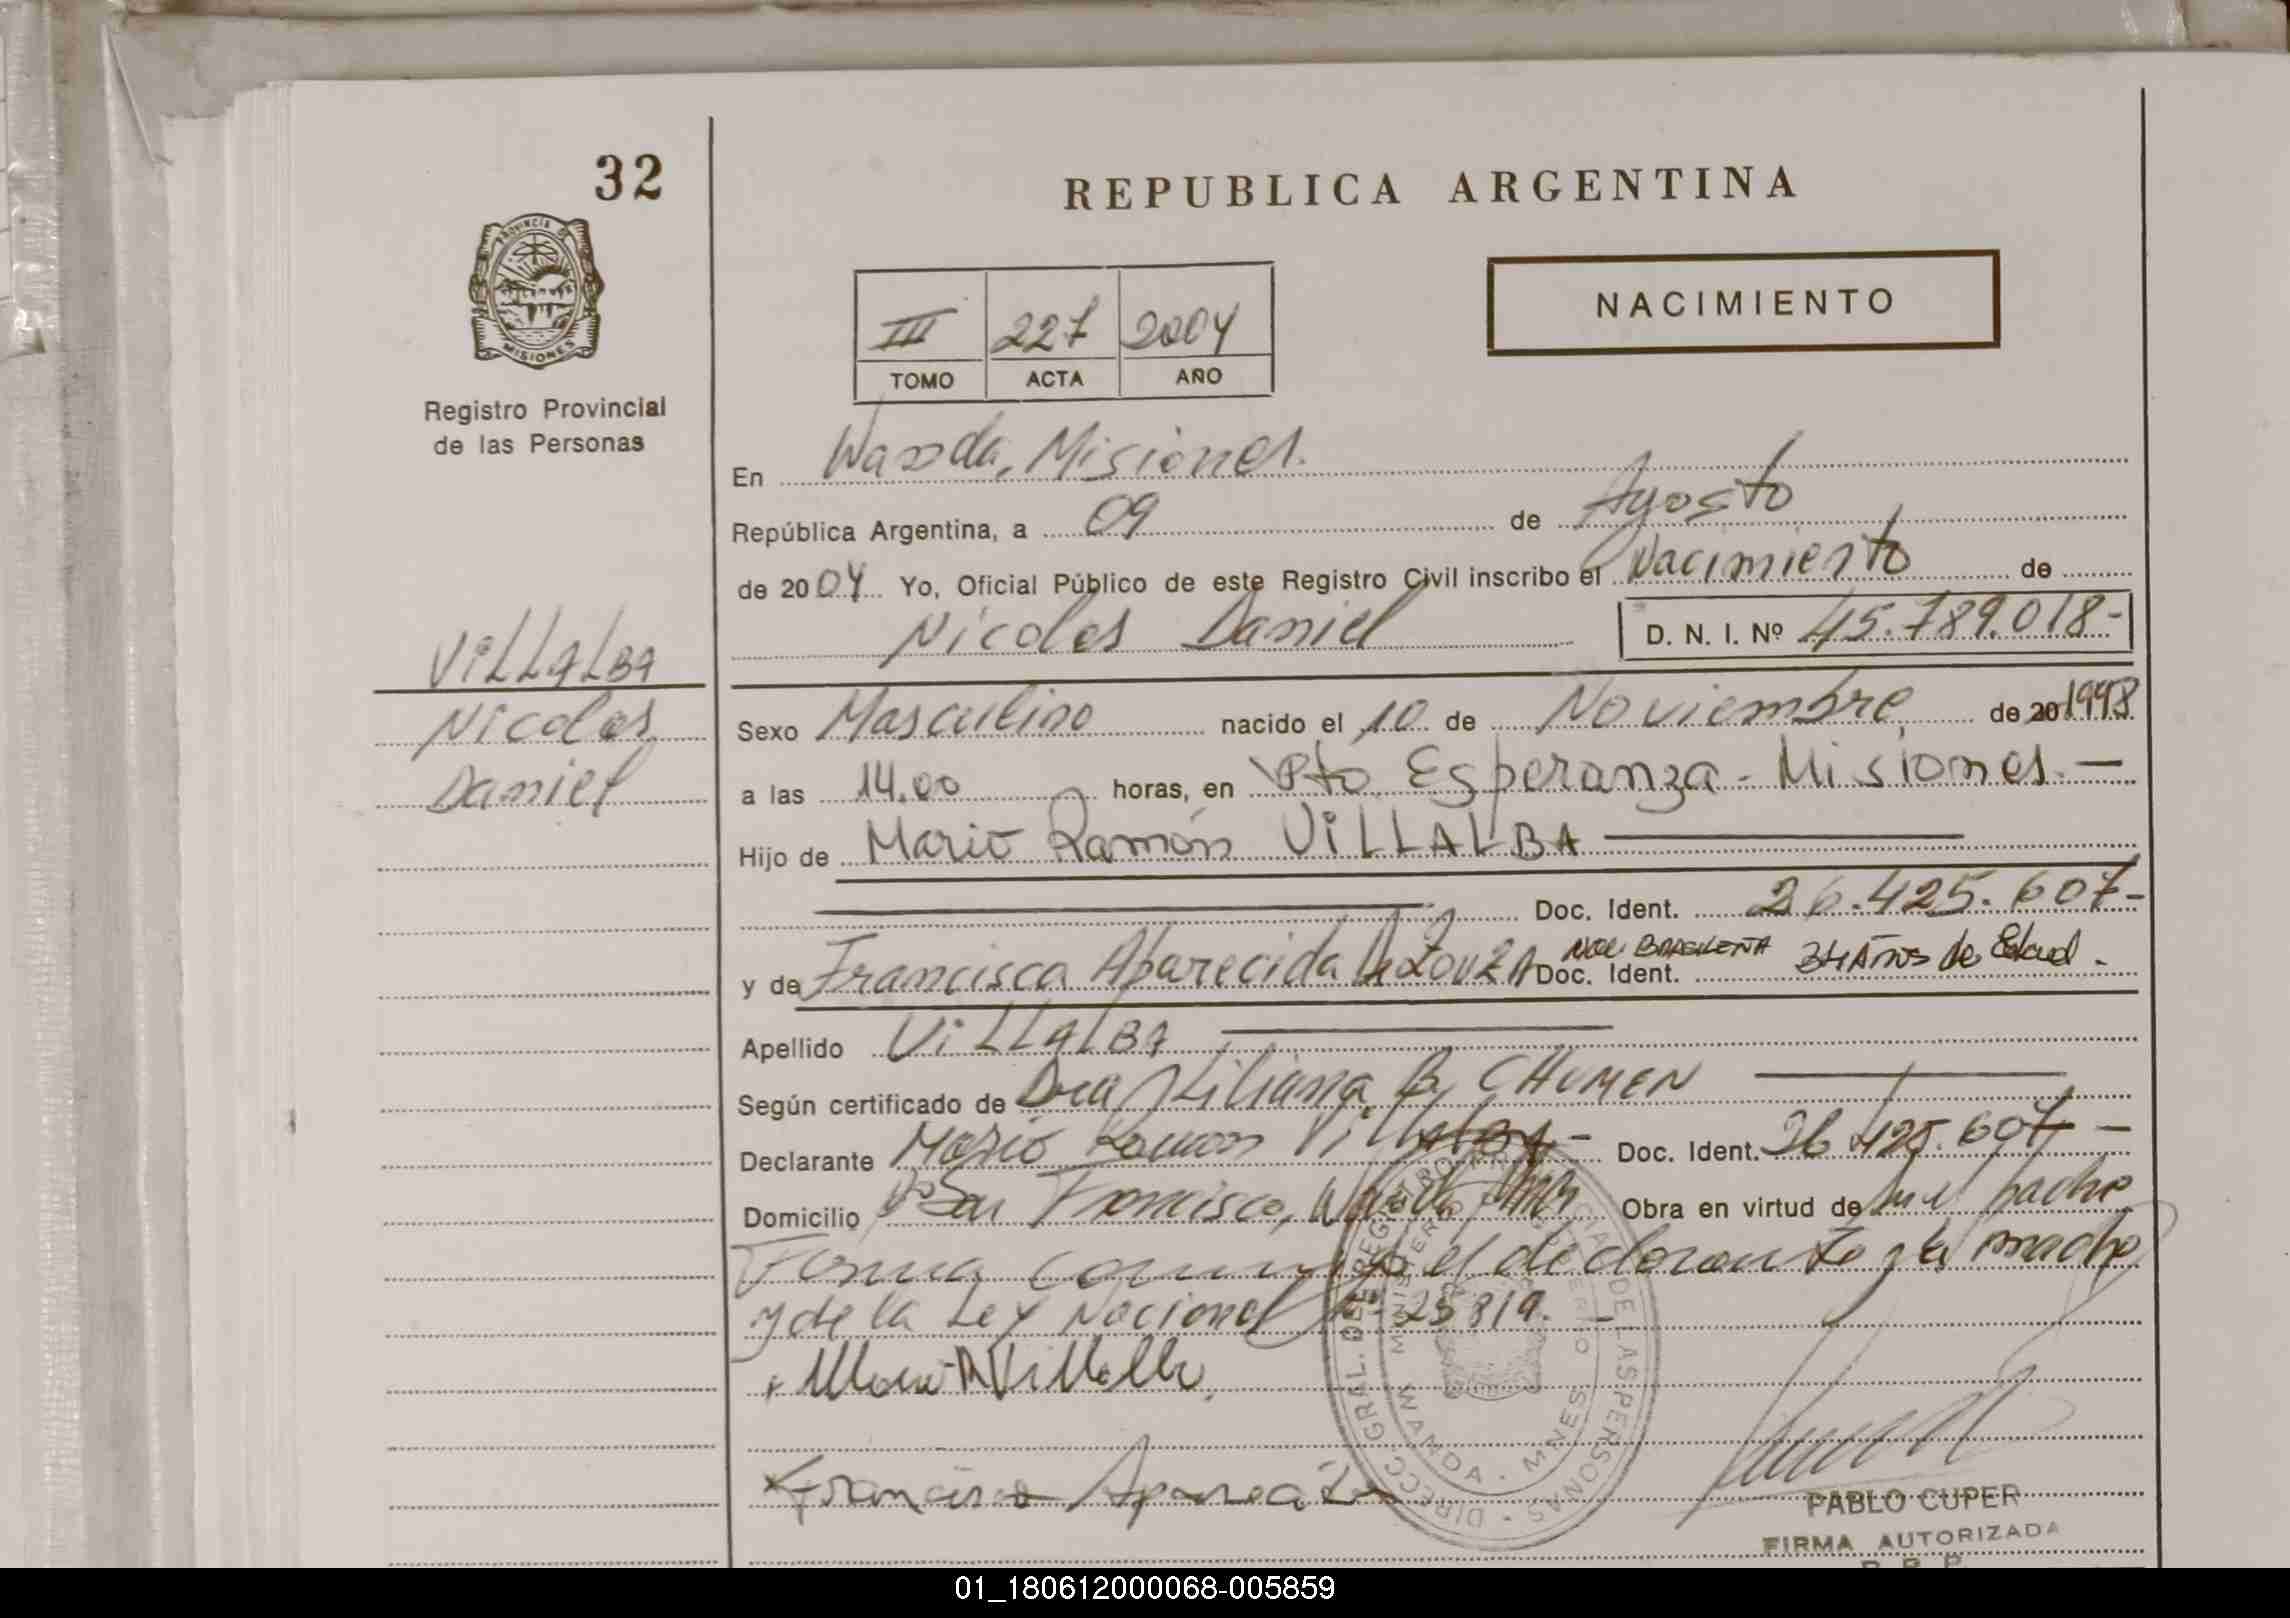 32
REPUBLICA ARGENTINA
PROVINCIA DE
MISIONES
NACIMIENTO
III 227 2004
TOMO ACTA AÑO
Registro Provincial
de las Personas
En Wanda, Misiones.
República Argentina, a 09 de Agosto
de 2004 Yo, Oficial Público de este Registro Civil inscribo el Nacimiento de
Nicolas Daniel D. N. I. Nº 45.789.018-
VILLALBA
Nicolas
Daniel
Sexo Masculino nacido el 10 de Noviembre de 20 1998
a las 14.00 horas, en Pto Esperanza - Misiones.—
Hijo de Mario Ramón VILLALBA
Doc. Ident. 26.425.607-
y de Francisca Aparecida de Souza Doc. Ident. 34 Años de Edad.
Apellido VILLALBA
Según certificado de Dra Liliana B. CHUMEN
Declarante Mario Ramon Villalba- Doc. Ident. 26.425.607—
Domicilio San Francisco, Wanda Obra en virtud de ser el padre
Firma el declarante y la madre
y de la Ley Nacional Nº 25819.-
Francisca Aparecida
DIRECC. GRAL. DE REGISTRO DE LAS PERSONAS
WANDA - MNES
PABLO CUPER
FIRMA AUTORIZADA
R. P. P.
01_180612000068-005859